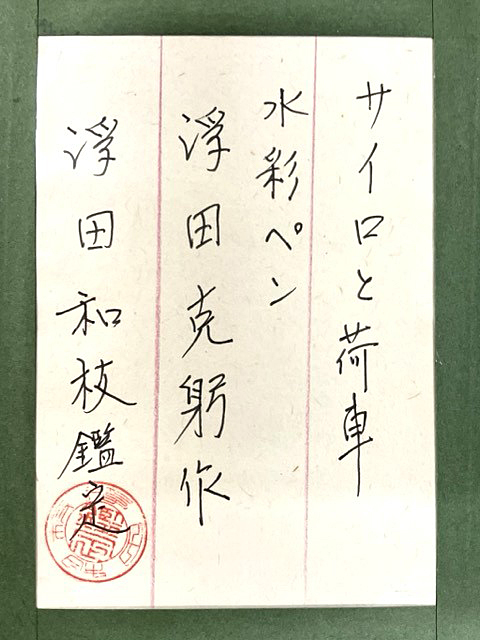 サイロと荷車
水彩ペン
浮田克躬作
浮田和枝鑑定